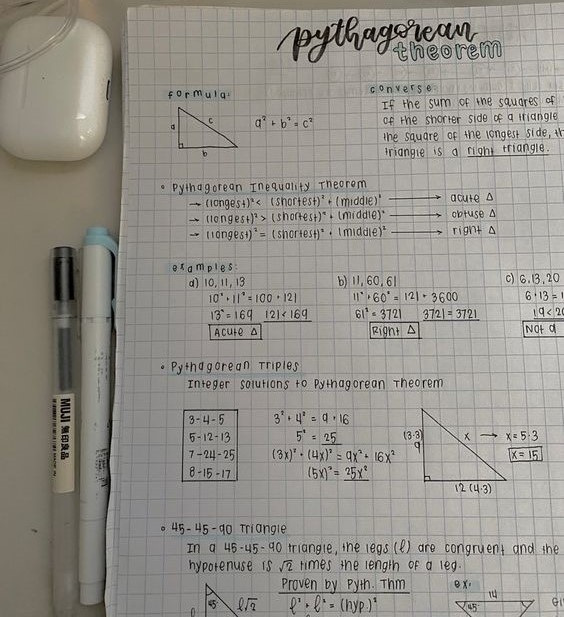 pythagorean
theorem
formula:
a c b
a² + b² = c²
converse:
If the sum of the squares of
of the shorter side of a triangle
the square of the longest side, th
triangle is a right triangle.
◦ Pythagorean Inequality Theorem
→ (longest)² < (shortest)² + (middle)² → acute △
→ (longest)² > (shortest)² + (middle)² → obtuse △
→ (longest)² = (shortest)² + (middle)² → right △
examples:
a) 10, 11, 13
10² + 11² = 100 + 121
13² = 169 121 < 169
Acute △
b) 11, 60, 61
11² + 60² = 121 + 3600
61² = 3721 3721 = 3721
Right △
c) 6, 13, 20
6 + 13 = 1
19 < 20
Not a
◦ Pythagorean Triples
Integer solutions to Pythagorean Theorem
3-4-5
5-12-13
7-24-25
8-15-17
3² + 4² = 9 + 16
5² = 25
(3x)² + (4x)² = 9x² + 16x²
(5x)² = 25x²
(3·3)
9
x → x = 5·3
x = 15
12 (4·3)
◦ 45-45-90 Triangle
In a 45-45-90 triangle, the legs (ℓ) are congruent and the
hypotenuse is √2 times the length of a leg.
Proven by Pyth. Thm
ℓ² + ℓ² = (hyp.)²
45°
ℓ√2
ex:
14
45°
MUJI 無印良品